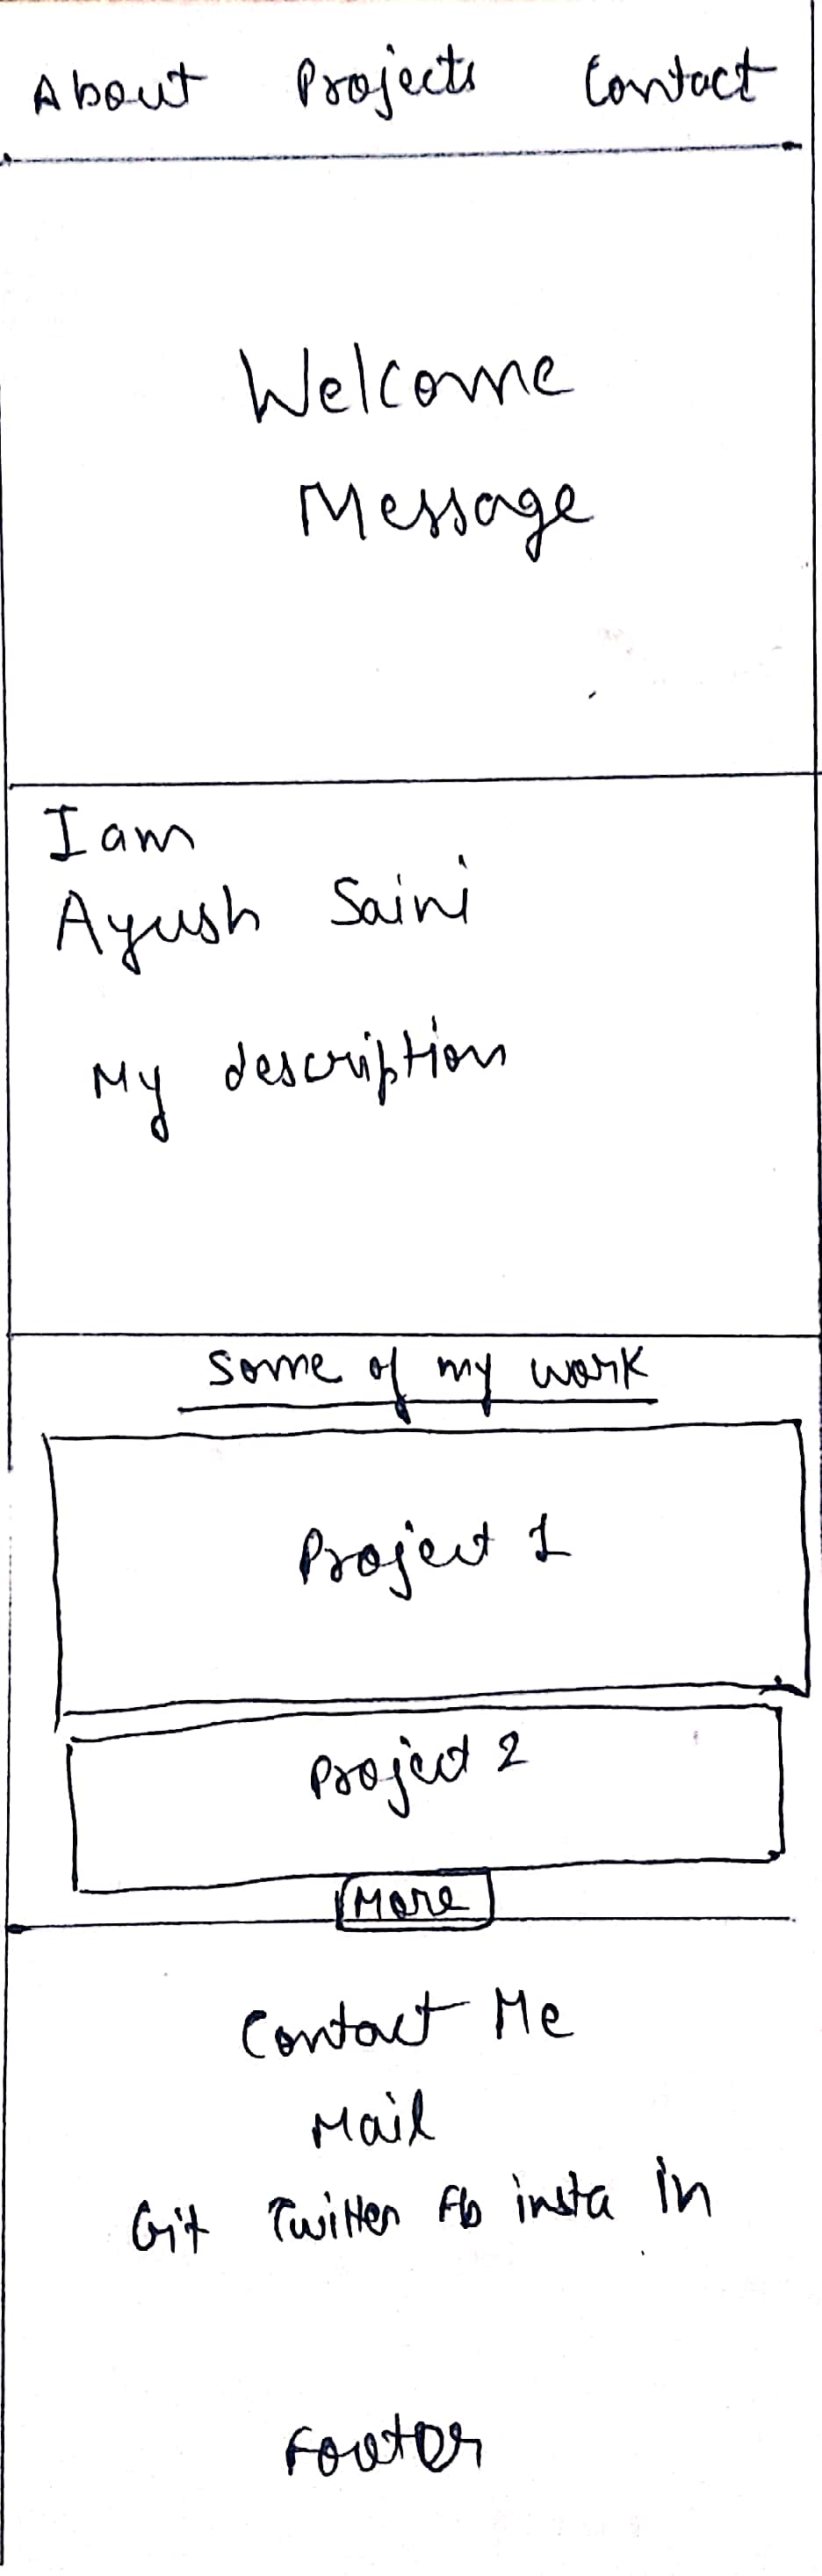 About Projects Contact
Welcome
Message
I am
Ayush Saini
My description
Some of my work
Project 1
Project 2
More
Contact Me
Mail
Git Twitter Fb insta in
Footer